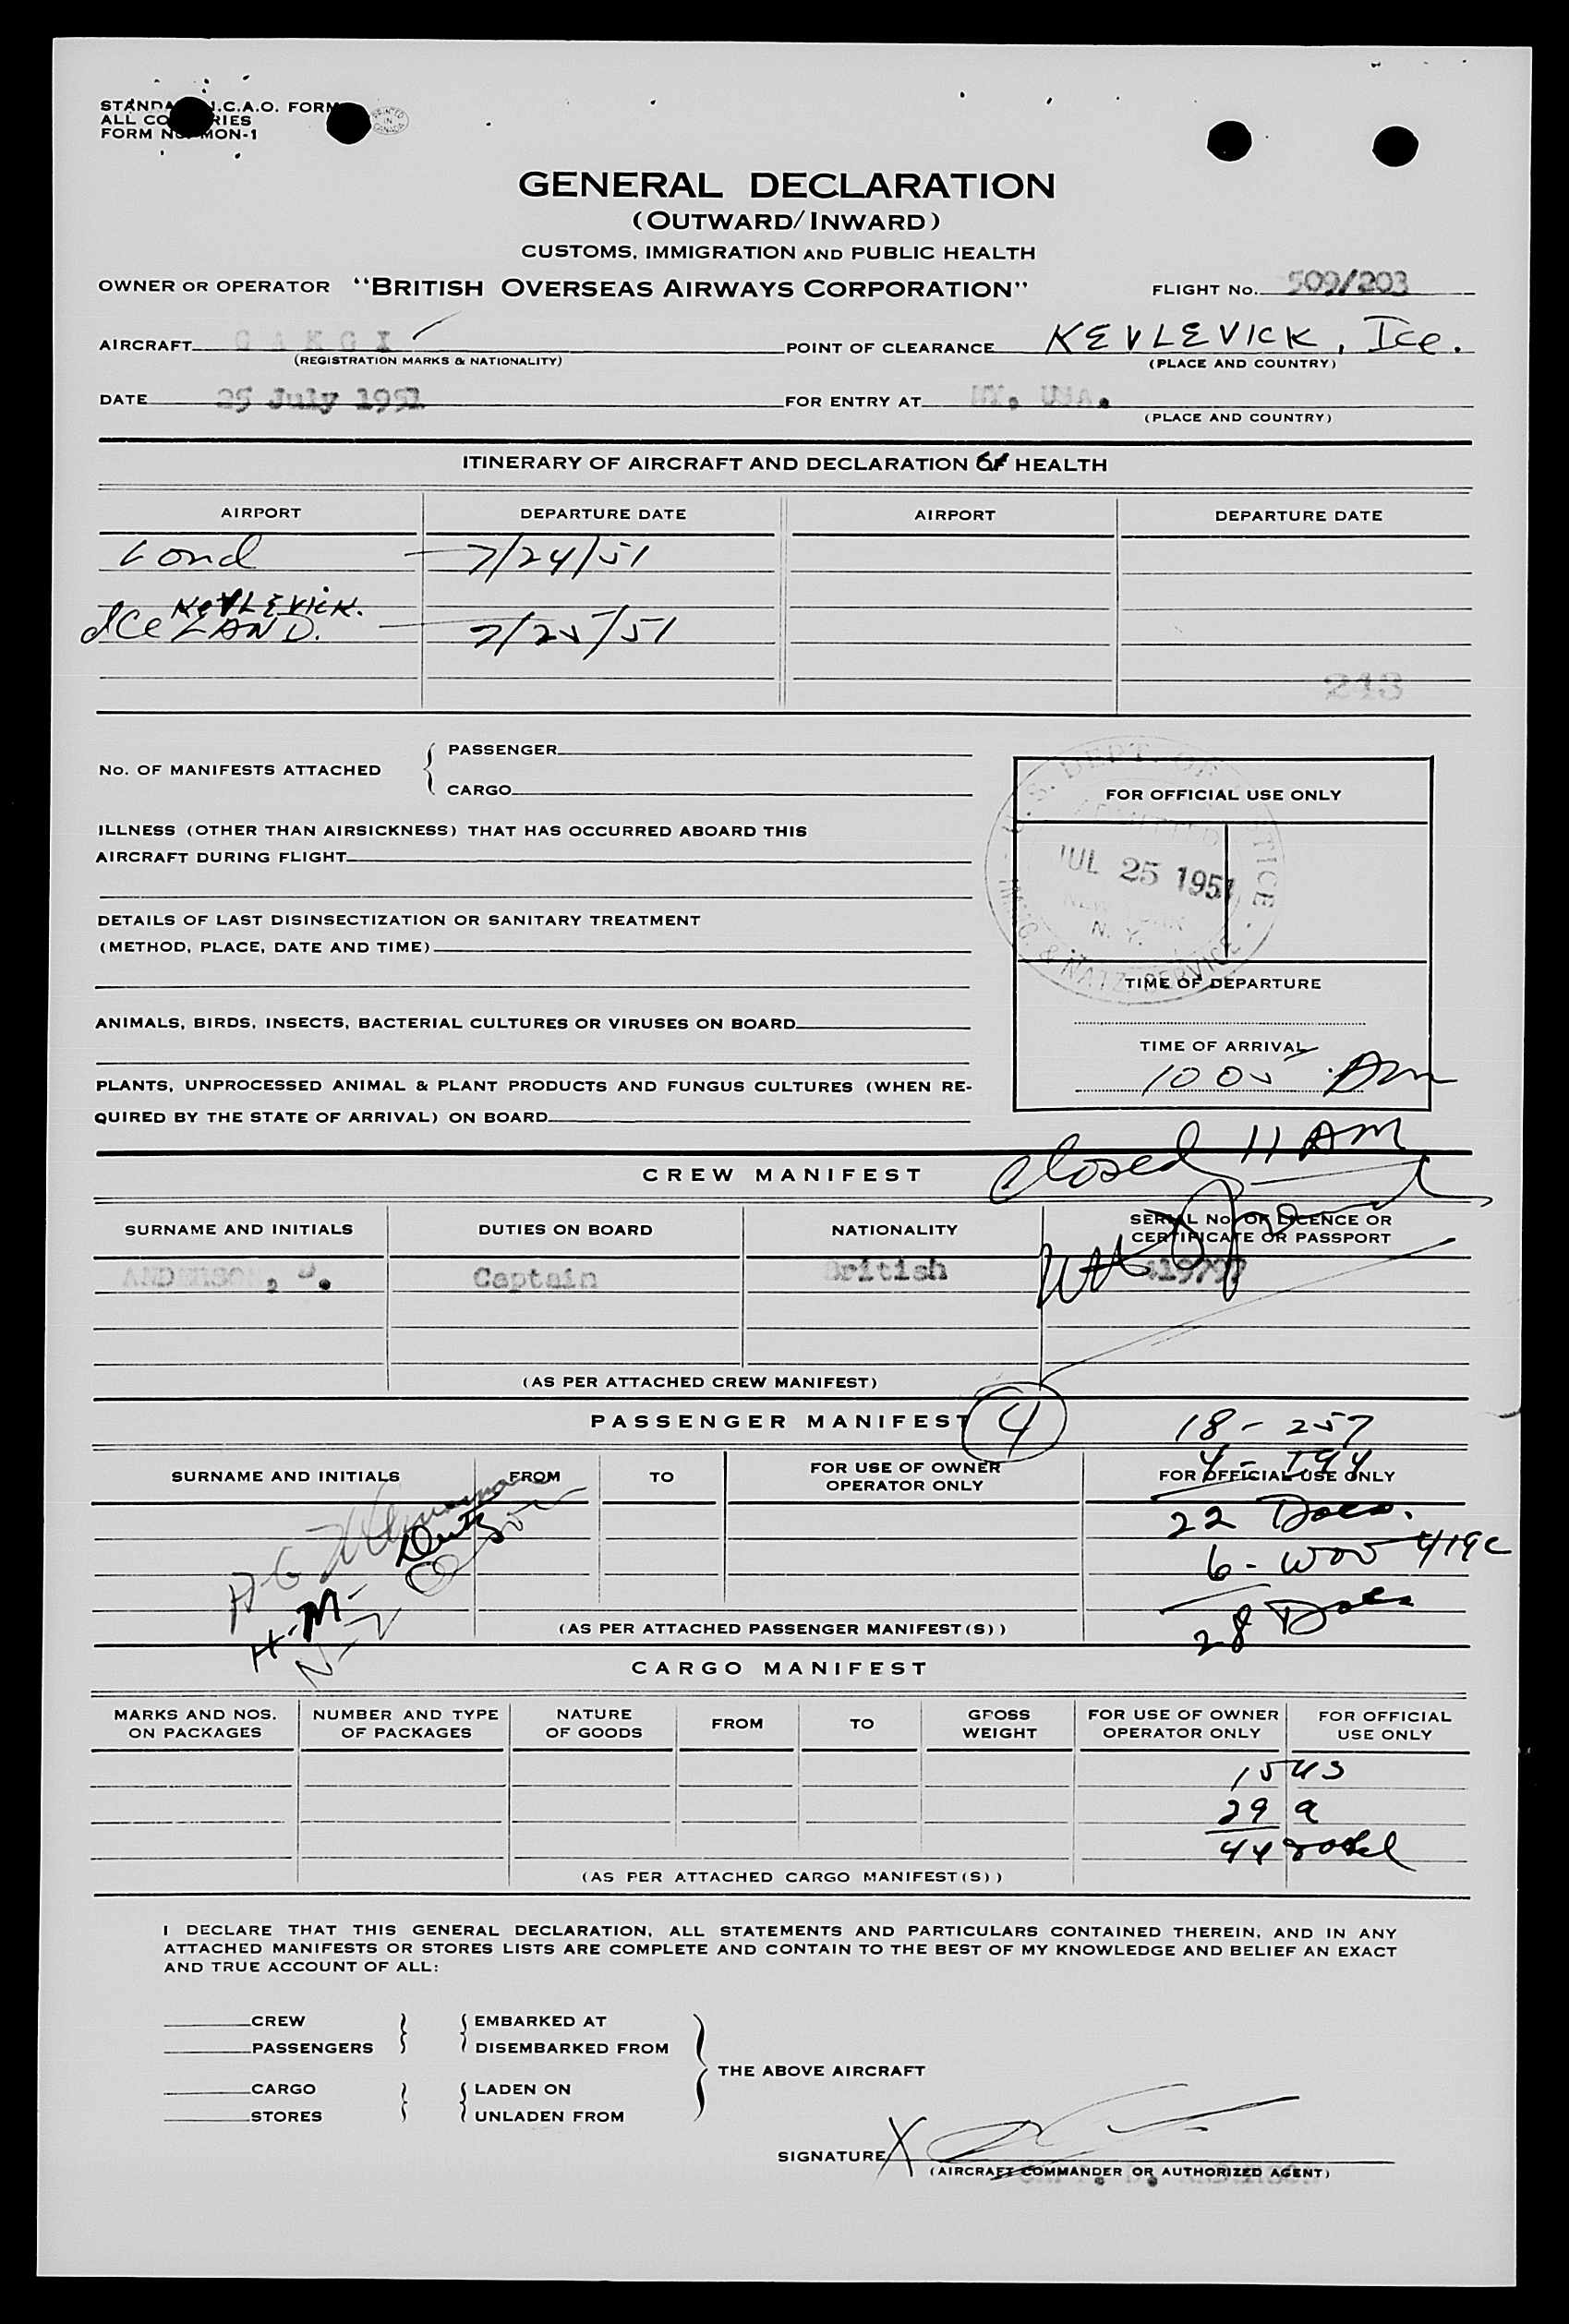 STANDARD I.C.A.O. FORM
ALL COUNTRIES
FORM NO. MON-1
PRINTED IN CANADA
GENERAL DECLARATION
(OUTWARD/INWARD)
CUSTOMS, IMMIGRATION AND PUBLIC HEALTH
OWNER OR OPERATOR "BRITISH OVERSEAS AIRWAYS CORPORATION" FLIGHT No. 509/203
AIRCRAFT G A K G I POINT OF CLEARANCE KEVLEVICK, Ice.
(REGISTRATION MARKS & NATIONALITY) (PLACE AND COUNTRY)
DATE 25 July 1951 FOR ENTRY AT NY. USA.
(PLACE AND COUNTRY)
ITINERARY OF AIRCRAFT AND DECLARATION OF HEALTH
AIRPORT DEPARTURE DATE AIRPORT DEPARTURE DATE
Lond — 7/24/51
KEVLEVICK.
ICELAND. — 7/25/51
243
No. OF MANIFESTS ATTACHED { PASSENGER
CARGO
FOR OFFICIAL USE ONLY
U.S. DEPT. OF JUSTICE
ADMITTED
JUL 25 1951
NEW YORK
N. Y.
IMMIG. & NATZ. SERVICE
ILLNESS (OTHER THAN AIRSICKNESS) THAT HAS OCCURRED ABOARD THIS
AIRCRAFT DURING FLIGHT
DETAILS OF LAST DISINSECTIZATION OR SANITARY TREATMENT
(METHOD, PLACE, DATE AND TIME)
TIME OF DEPARTURE
ANIMALS, BIRDS, INSECTS, BACTERIAL CULTURES OR VIRUSES ON BOARD
TIME OF ARRIVAL
1005 AM
PLANTS, UNPROCESSED ANIMAL & PLANT PRODUCTS AND FUNGUS CULTURES (WHEN RE-
QUIRED BY THE STATE OF ARRIVAL) ON BOARD
closed 11 AM
CREW MANIFEST
SURNAME AND INITIALS DUTIES ON BOARD NATIONALITY SERIAL No. OF LICENCE OR
CERTIFICATE OR PASSPORT
ANDERSON, D. Captain British 419797
(AS PER ATTACHED CREW MANIFEST)
PASSENGER MANIFEST 4 18 - 257
4 - I94
SURNAME AND INITIALS FROM TO FOR USE OF OWNER
OPERATOR ONLY FOR OFFICIAL USE ONLY
22 Docs.
6 - WOV 419c
28 Docs
(AS PER ATTACHED PASSENGER MANIFEST(S))
CARGO MANIFEST
MARKS AND NOS.
ON PACKAGES NUMBER AND TYPE
OF PACKAGES NATURE
OF GOODS FROM TO GROSS
WEIGHT FOR USE OF OWNER
OPERATOR ONLY FOR OFFICIAL
USE ONLY
15 US
29 a
44 total
(AS PER ATTACHED CARGO MANIFEST(S))
I DECLARE THAT THIS GENERAL DECLARATION, ALL STATEMENTS AND PARTICULARS CONTAINED THEREIN, AND IN ANY
ATTACHED MANIFESTS OR STORES LISTS ARE COMPLETE AND CONTAIN TO THE BEST OF MY KNOWLEDGE AND BELIEF AN EXACT
AND TRUE ACCOUNT OF ALL:
CREW } { EMBARKED AT
PASSENGERS DISEMBARKED FROM
THE ABOVE AIRCRAFT
CARGO } { LADEN ON
STORES UNLADEN FROM
SIGNATURE X
(AIRCRAFT COMMANDER OR AUTHORIZED AGENT)